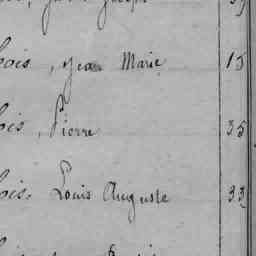 bois, Jean Marie 15
bois, Pierre 35
bois. Louis Auguste 33